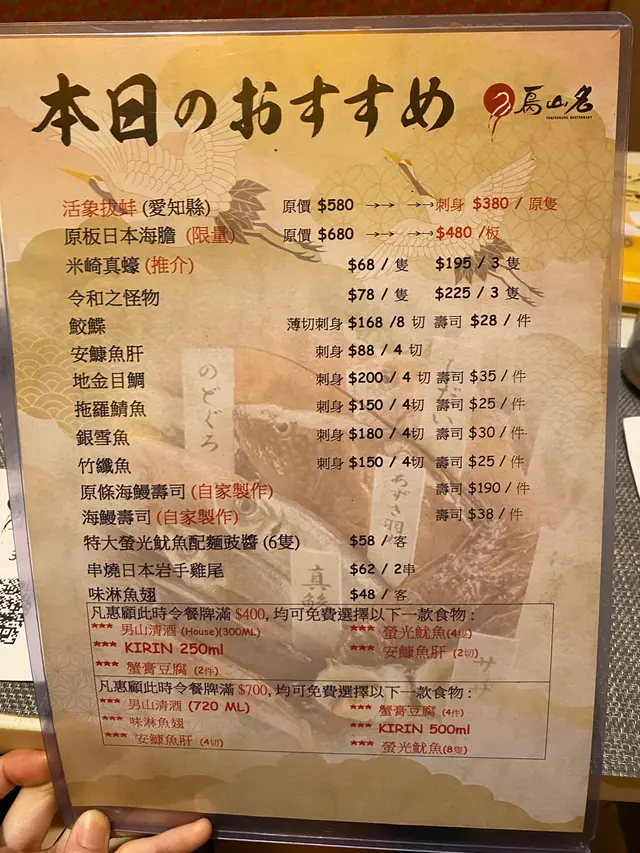 本日のおすすめ
鳥山名
活象拔蚌 (愛知縣) 原價 $580 →→ →→刺身 $380 / 原隻
原板日本海膽 (限量) 原價 $680 →→ →→$480 /板
米崎真蠔 (推介) $68 / 隻 $195 / 3 隻
令和之怪物 $78 / 隻 $225 / 3 隻
鮫鰈 薄切刺身 $168 /8 切 壽司 $28 / 件
安鱇魚肝 刺身 $88 / 4 切
地金目鯛 刺身 $200 / 4 切 壽司 $35 / 件
拖羅鯖魚 刺身 $150 / 4切 壽司 $25 / 件
銀雪魚 刺身 $180 / 4切 壽司 $30 / 件
竹纖魚 刺身 $150 / 4切 壽司 $25 / 件
原條海鰻壽司 (自家製作) 壽司 $190 / 件
海鰻壽司 (自家製作) 壽司 $38 / 件
特大螢光魷魚配麵豉醬 (6隻) $58 / 客
串燒日本岩手雞尾 $62 / 2串
味淋魚翅 $48 / 客
凡惠顧此時令餐牌滿 $400, 均可免費選擇以下一款食物 :
*** 男山清酒 (House)(300ML) *** 螢光魷魚(4隻)
*** KIRIN 250ml *** 安鱇魚肝 (2切)
*** 蟹膏豆腐 (2件)
凡惠顧此時令餐牌滿 $700, 均可免費選擇以下一款食物 :
*** 男山清酒 (720 ML) *** 蟹膏豆腐 (4件)
*** 味淋魚翅 *** KIRIN 500ml
*** 安鱇魚肝 (4切) *** 螢光魷魚(8隻)
のどぐろ
あずき羽
真鯵